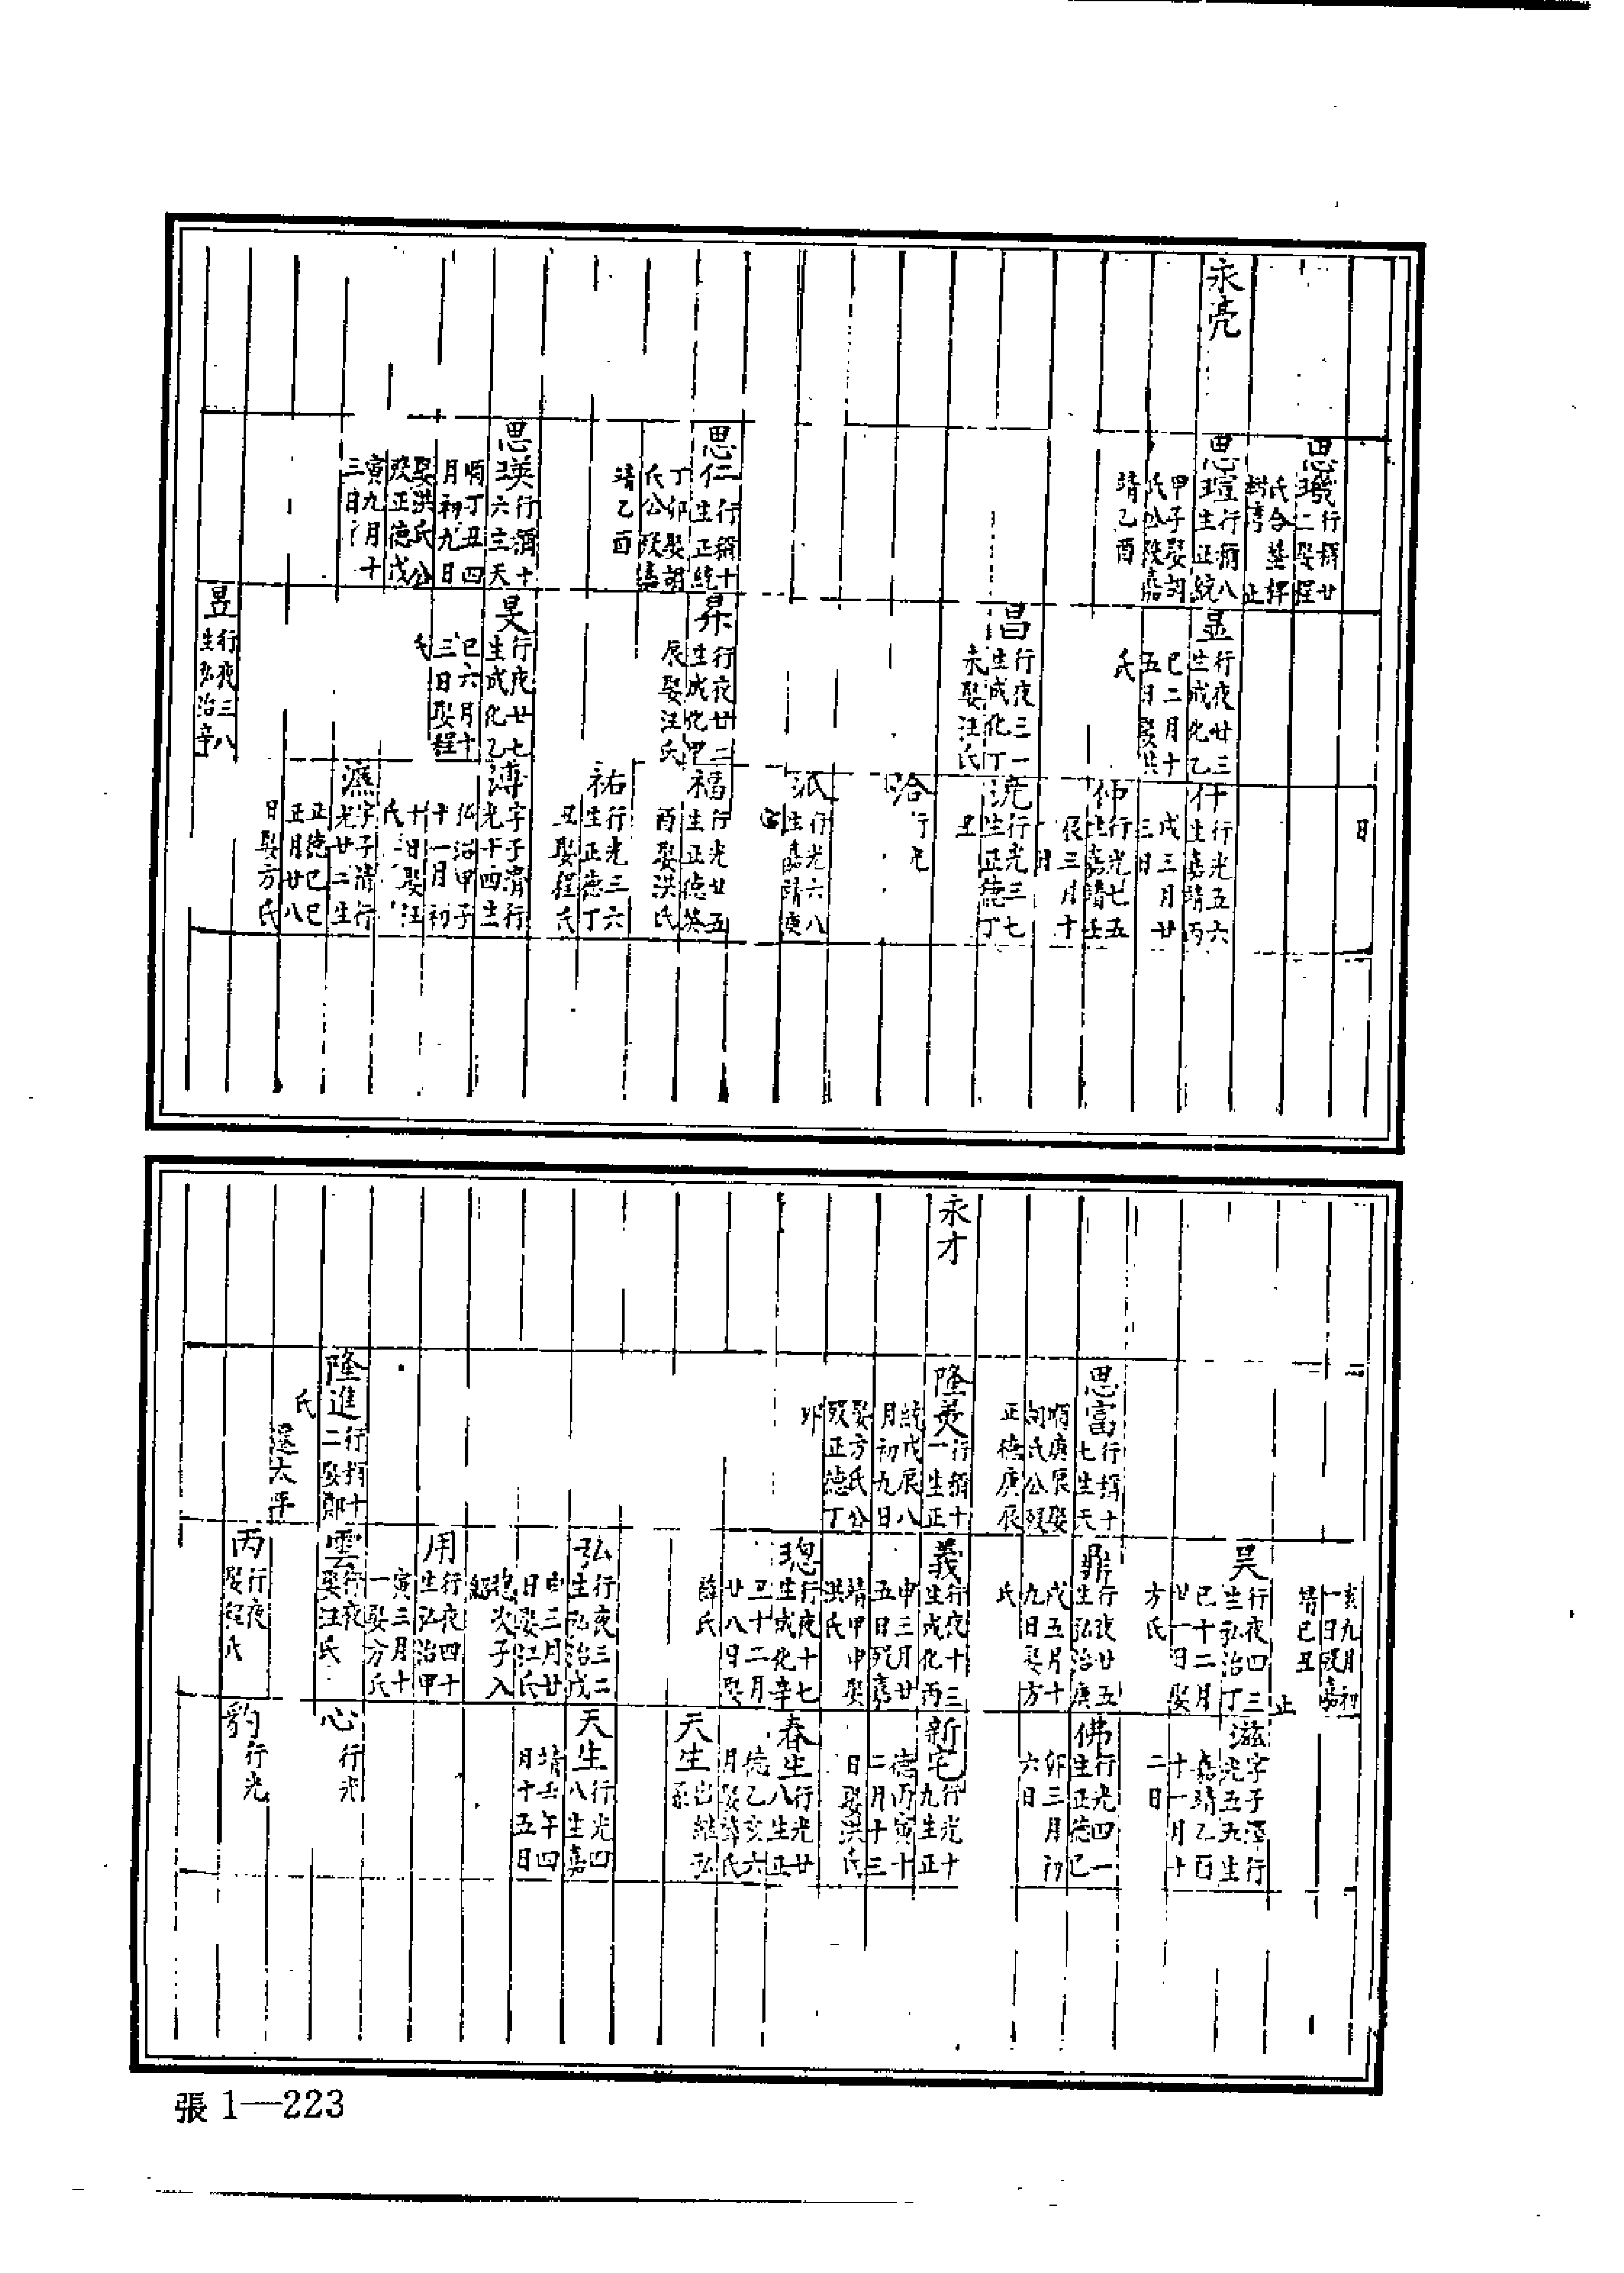 日
思璣行稱廿
二娶程
氏合塟擇
樹灣 止
永亮
思瑄行稱八
生正統
甲子娶胡
氏公殁嘉
靖乙酉
显行夜廿三
生成化乙
巳二月十
五日娶洪
氏
仟行光五六
生嘉靖丙
戌三月廿
三日
行光七五
生嘉靖壬
辰三月十
日
昌行夜三一
生成化丁
未娶汪氏
行光三七
生正德丁
丑
洽行光
派行光六八
生嘉靖庚
寅
思仁行稱十
生正統
丁卯娶胡
氏公殁嘉
靖乙酉
昇行夜廿二
生成化甲
辰娶汪氏
福行光廿五
生正德癸
酉娶洪氏
祐行光三六
生正德丁
丑娶程氏
思瑛行稱十
六生天
順丁丑四
月初九日
娶洪氏公
殁正德戊
寅九月十
三日
旻行夜廿七
生成化乙
巳六月十
三日娶程
氏
溥字子濟行
光十四生
弘治甲子
十一月初
十日娶汪
氏
濕字子清行
光廿二生
正德己巳
正月廿八
日娶方氏
昱行夜三八
生弘治辛
亥九月初
一日殁嘉
靖己丑
止
昊行夜四三
生弘治丁
巳十二月
廿一日娶
方氏
滋字子澤行
光五九生
嘉靖乙酉
十一月十
二日
思富行稱十
七生天
順庚辰娶
胡氏公殁
正德庚辰
鼎行夜廿五
生弘治庚
戌五月十
九日娶方
氏
佛行光四一
生正德己
卯三月初
六日
永才
隆美行稱十
一生正
統戊辰八
月初九日
娶方氏公
殁正德丁
卯
義行夜十三
生成化丙
申三月廿
五日殁嘉
靖甲申娶
洪氏
新宅行光十
九生正
德丙寅十
二月十三
日娶洪氏
璁行夜十七
生成化辛
丑十二月
廿八日娶
薛氏
春生行光廿
八生正
德乙亥六
月娶薛氏
天生出繼弘
系
弘行夜三二
生弘治戊
申三月廿
日娶江氏
璁次子入
繼
天生行光四
八生嘉
靖壬午四
月十五日
用行夜四十
生弘治甲
寅三月十
一娶方氏
隆進行稱十
二娶鄭
氏
還太平
雲行夜
娶汪氏
心行光
丙行夜
娶程氏
豹行光
張1—223